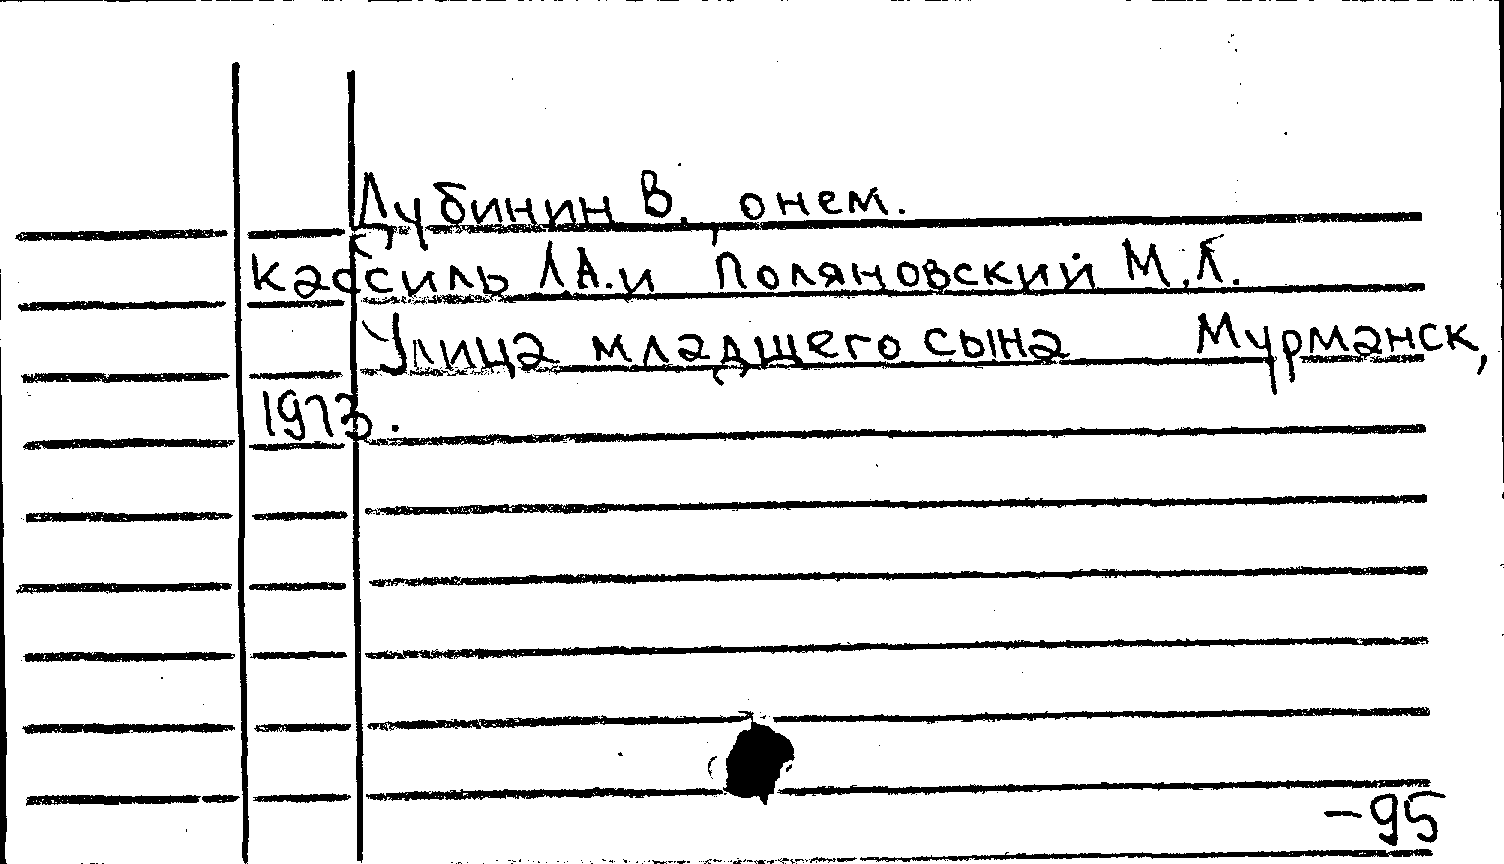 Дубинин В., о нем.
Кассиль Л.А. и Поляновский М.Л.
Улица младшего сына Мурманск,
1973.
-95